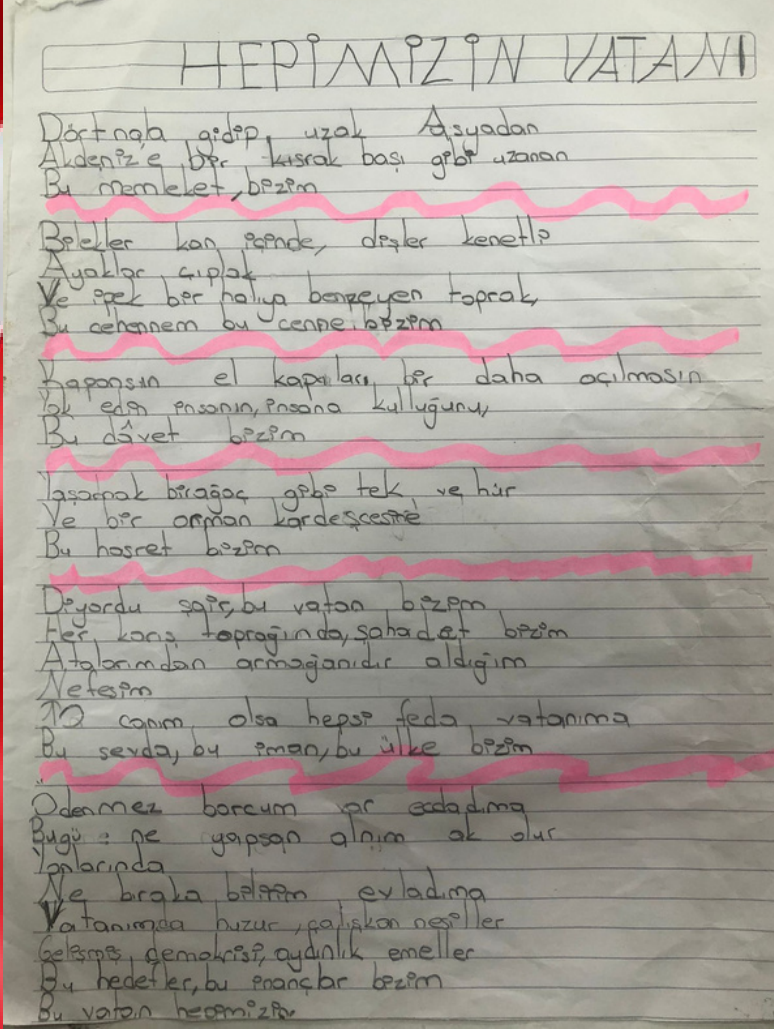 HEPİMİZİN VATANI
Dörtnala gidip, uzak Asyadan
Akdeniz'e bir kısrak başı gibi uzanan
Bu memleket, bizim
Bilekler kan içinde, dişler kenetli
Ayaklar çıplak
Ve ipek bir halıya benzeyen toprak,
Bu cehennem bu cennet bizim
Kapansın el kapıları, bir daha açılmasın
Yok edin insanın, insana kulluğunu,
Bu dâvet bizim
Yaşamak bir ağaç gibi tek ve hür
Ve bir orman kardeşcesine
Bu hasret bizim
Diyordu şair, bu vatan bizim
Her karış toprağında, şahadet bizim
Atalarımdan armağanıdır aldığım
Nefesim
10 canım olsa hepsi feda vatanıma
Bu sevda, bu iman, bu ülke bizim
Ödenmez borcum var ecdadıma
ne yapsan alnım ak olur
Yanlarında
Ne bıraka bilirim evladıma
Vatanımda huzur, çalışkan nesiller
Gelişmiş demokrisi, aydınlık emeller
Bu hedefler, bu inançlar bizim
Bu vatan hepimizin